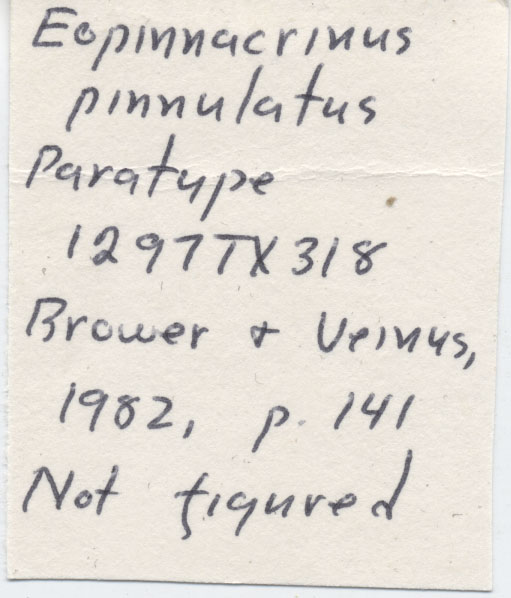 Eopinnacrinus
pinnulatus
Paratype
1297TX318
Brower + Veinus,
1982, p. 141
Not figured